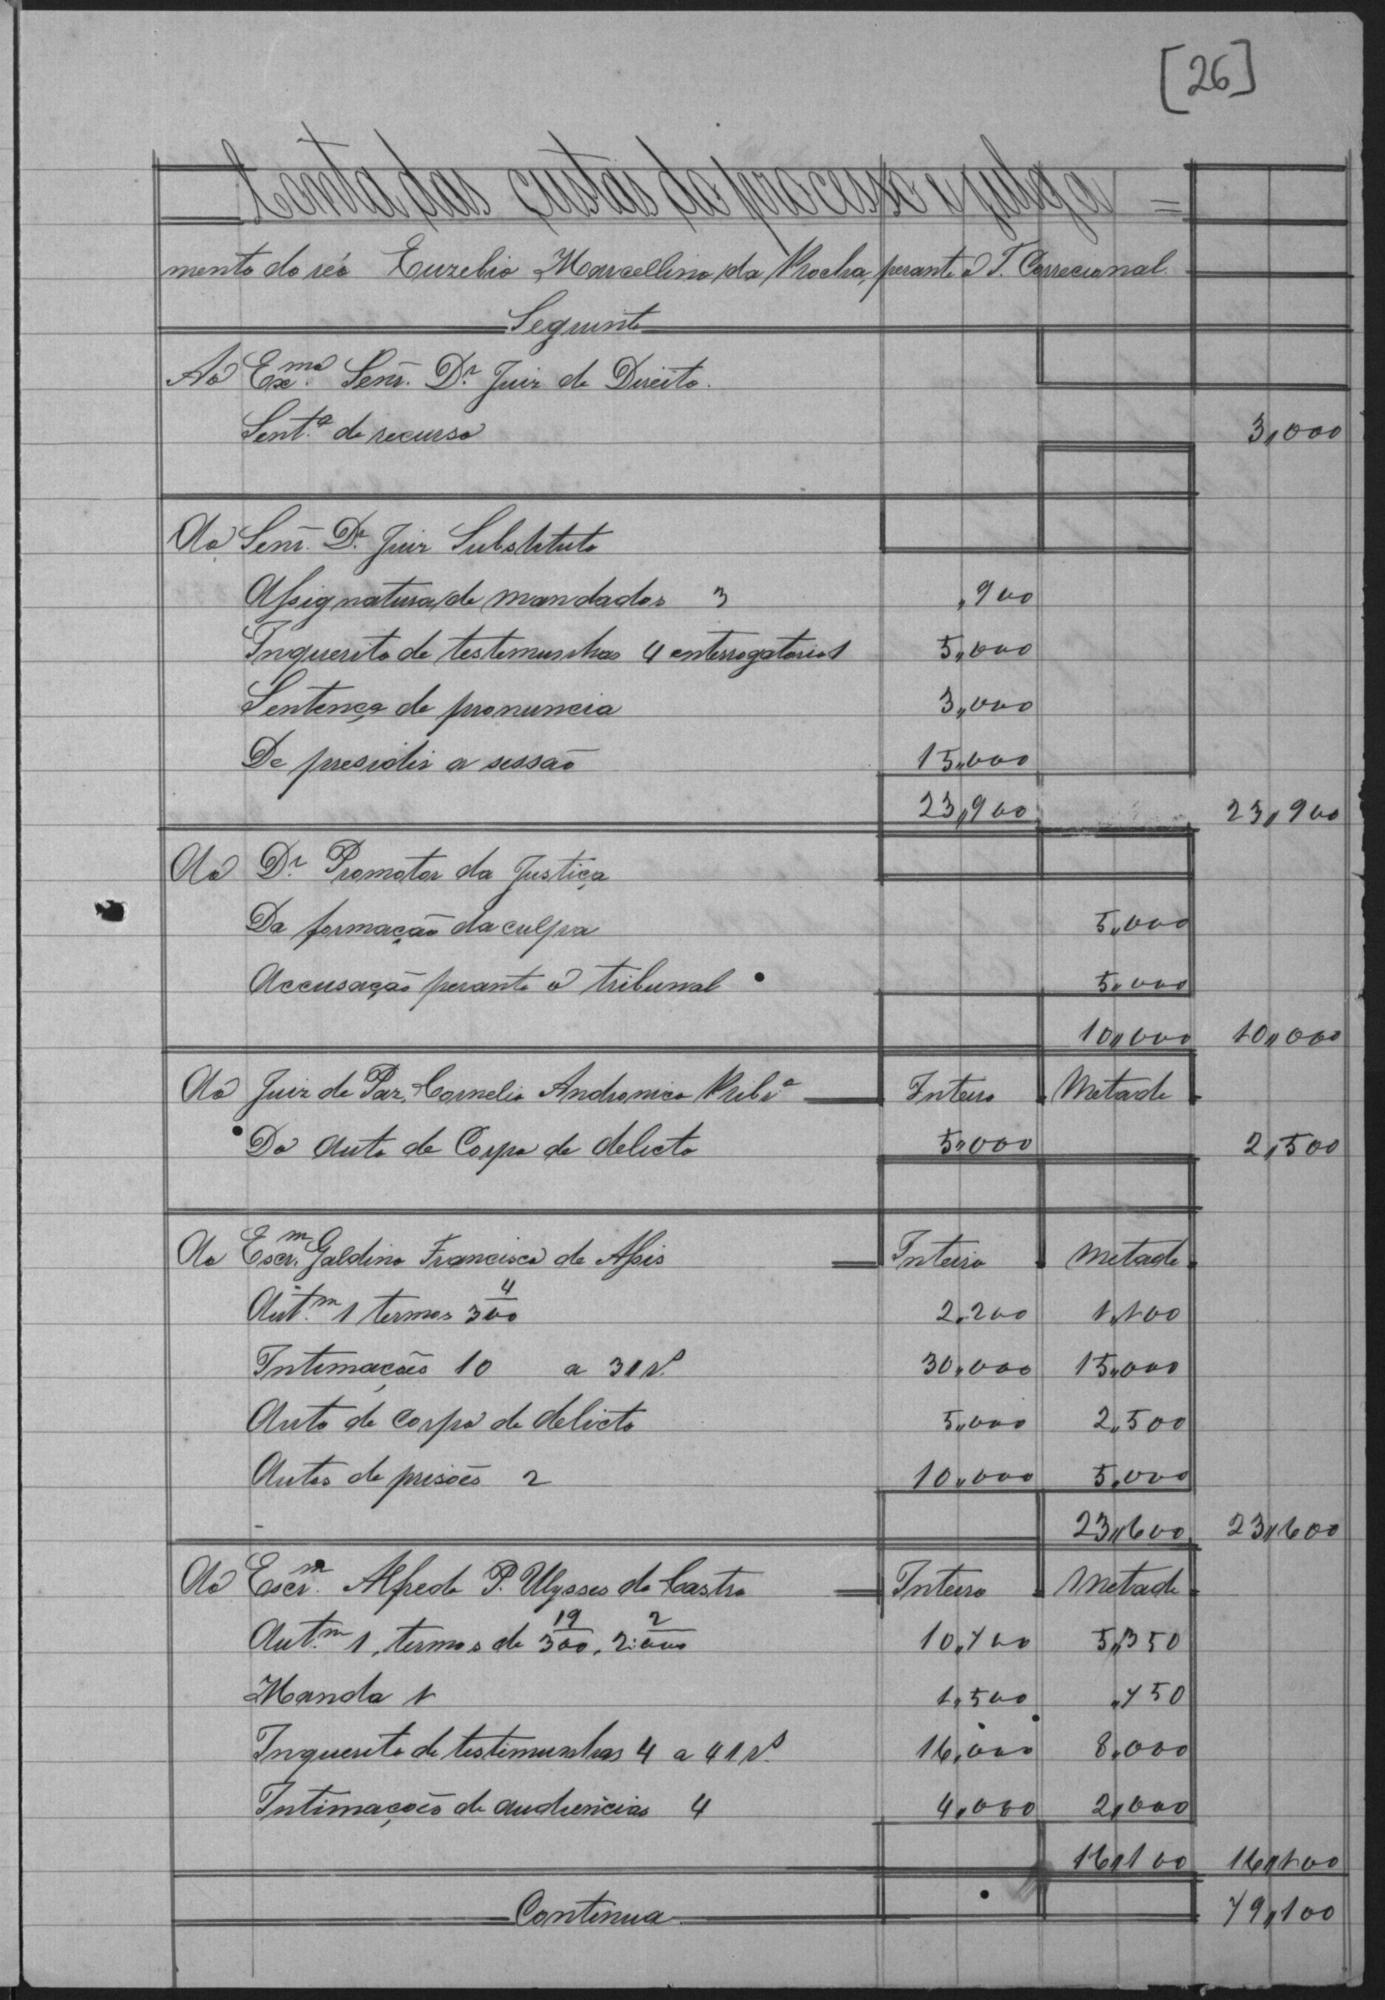 [26]
Conta das custas do processo e julga =
mento do réo Euzebio Marcellino da Rocha, perante o T. Correcional
Seguinte
Ao Exmº. Senr. Dr. Juiz de Direito.
Sentª de recurso 3,000
Ao Senr. Dr. Juiz Substituto
Assignatura de mandados 3 ,900
Inquerito de testemunhas 4 enterrogatorio 1 5,000
Sentença de pronuncia 3,000
De presidir a sessão 15,000
23,900 23,900
Ao Dr. Promotor da Justiça
Da formação da culpa 5,000
Accusação perante o tribunal 5,000
10,000 10,000
Ao Juiz de Paz, Cornelio Andronico Ribrª Inteiro Metade
Do auto de Corpo de delicto 5,000 2,500
Ao Escrm. Galdino Francisco de Assis Inteiro Metade
Autm. 1 termos 4/300 2,200 1,100
Intimações 10 a 3 1 rs. 30,000 15,000
Auto de corpo de delicto 5,000 2,500
Autos de prisões 2 10,000 5,000
23,600 23,600
Ao Escrm. Alfredo P. Ulysses de Castro Inteiro Metade
Autm. 1, termos de 19/300, 2/2:000 10,700 5,350
Manda 1 1,500 ,750
Inquerito de testimunhas 4 a 4 1 rs. 16,000 8,000
Intimações de audiencias 4 4,000 2,000
16,100 16,100
Continua 79,100